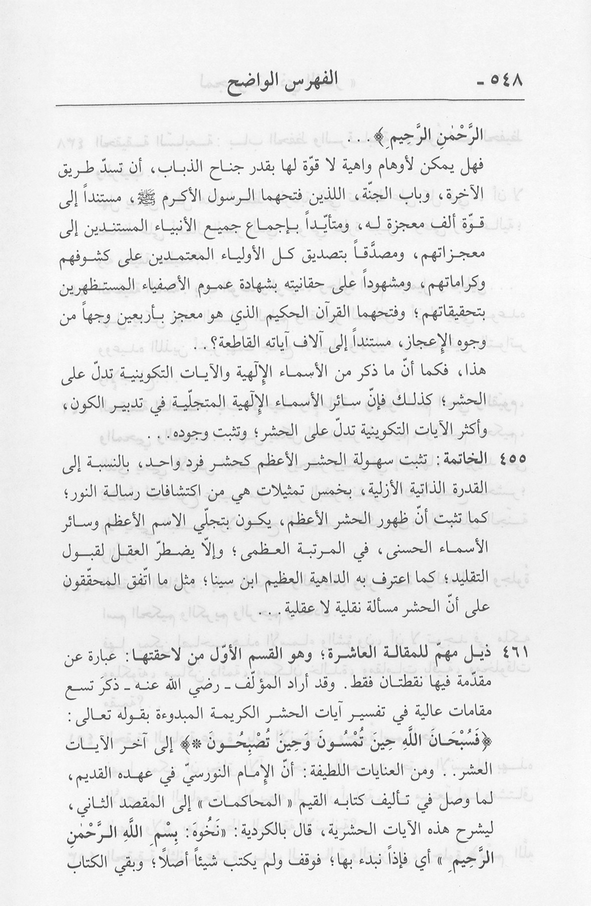 ٥٤٨ - الفهرس الواضح
الرَّحْمٰنِ الرَّحِيمِ﴾...
فهل يمكن لأوهام واهية لا قوّة لها بقدر جناح الذباب، أن تسدّ طريق
الآخرة، وباب الجنّة، اللذين فتحهما الرسول الأكرم ﷺ، مستنداً إلى
قوّة ألف معجزة له، ومتأيّداً بإجماع جميع الأنبياء المستندين إلى
معجزاتهم، ومصدَّقاً بتصديق كل الأولياء المعتمدين على كشوفهم
وكراماتهم، ومشهوداً على حقانيته بشهادة عموم الأصفياء المستظهرين
بتحقيقاتهم؛ وفتحهما القرآن الحكيم الذي هو معجز بأربعين وجهاً من
وجوه الإعجاز، مستنداً إلى آلاف آياته القاطعة؟..
هذا، فكما أنّ ما ذكر من الأسماء الإلٰهية والآيات التكوينية تدلّ على
الحشر؛ كذلك فإنّ سائر الأسماء الإلٰهية المتجلّية في تدبير الكون،
وأكثر الآيات التكوينية تدلّ على الحشر؛ وتثبت وجوده...
٤٥٥ الخاتمة: تثبت سهولة الحشر الأعظم كحشر فرد واحد، بالنسبة إلى
القدرة الذاتية الأزلية، بخمس تمثيلات هي من اكتشافات رسالة النور؛
كما تثبت أنّ ظهور الحشر الأعظم، يكون بتجلّي الاسم الأعظم وسائر
الأسماء الحسنى، في المرتبة العظمى؛ وإلّا يضطرّ العقل لقبول
التقليد؛ كما اعترف به الداهية العظيم ابن سينا؛ مثل ما اتّفق المحقّقون
على أنّ الحشر مسألة نقلية لا عقلية...
٤٦١ ذيل مهمّ للمقالة العاشرة؛ وهو القسم الأوّل من لاحقتها: عبارة عن
مقدّمة فيها نقطتان فقط. وقد أراد المؤلّف - رضي الله عنه - ذكر تسع
مقامات عالية في تفسير آيات الحشر الكريمة المبدوءة بقوله تعالى:
﴿فَسُبْحَانَ اللَّهِ حِينَ تُمْسُونَ وَحِينَ تُصْبِحُونَ *﴾ إلى آخر الآيات
العشر.. ومن العنايات اللطيفة: أنّ الإمام النورسيّ في عهده القديم،
لما وصل في تأليف كتابه القيم «المحاكمات» إلى المقصد الثاني،
ليشرح هذه الآيات الحشرية، قال بالكردية: «نَخُوَهْ: بِسْمِ اللَّهِ الرَّحْمٰنِ
الرَّحِيمِ» أي فإذاً نبدء بها؛ فوقف ولم يكتب شيئاً أصلًا؛ وبقي الكتاب